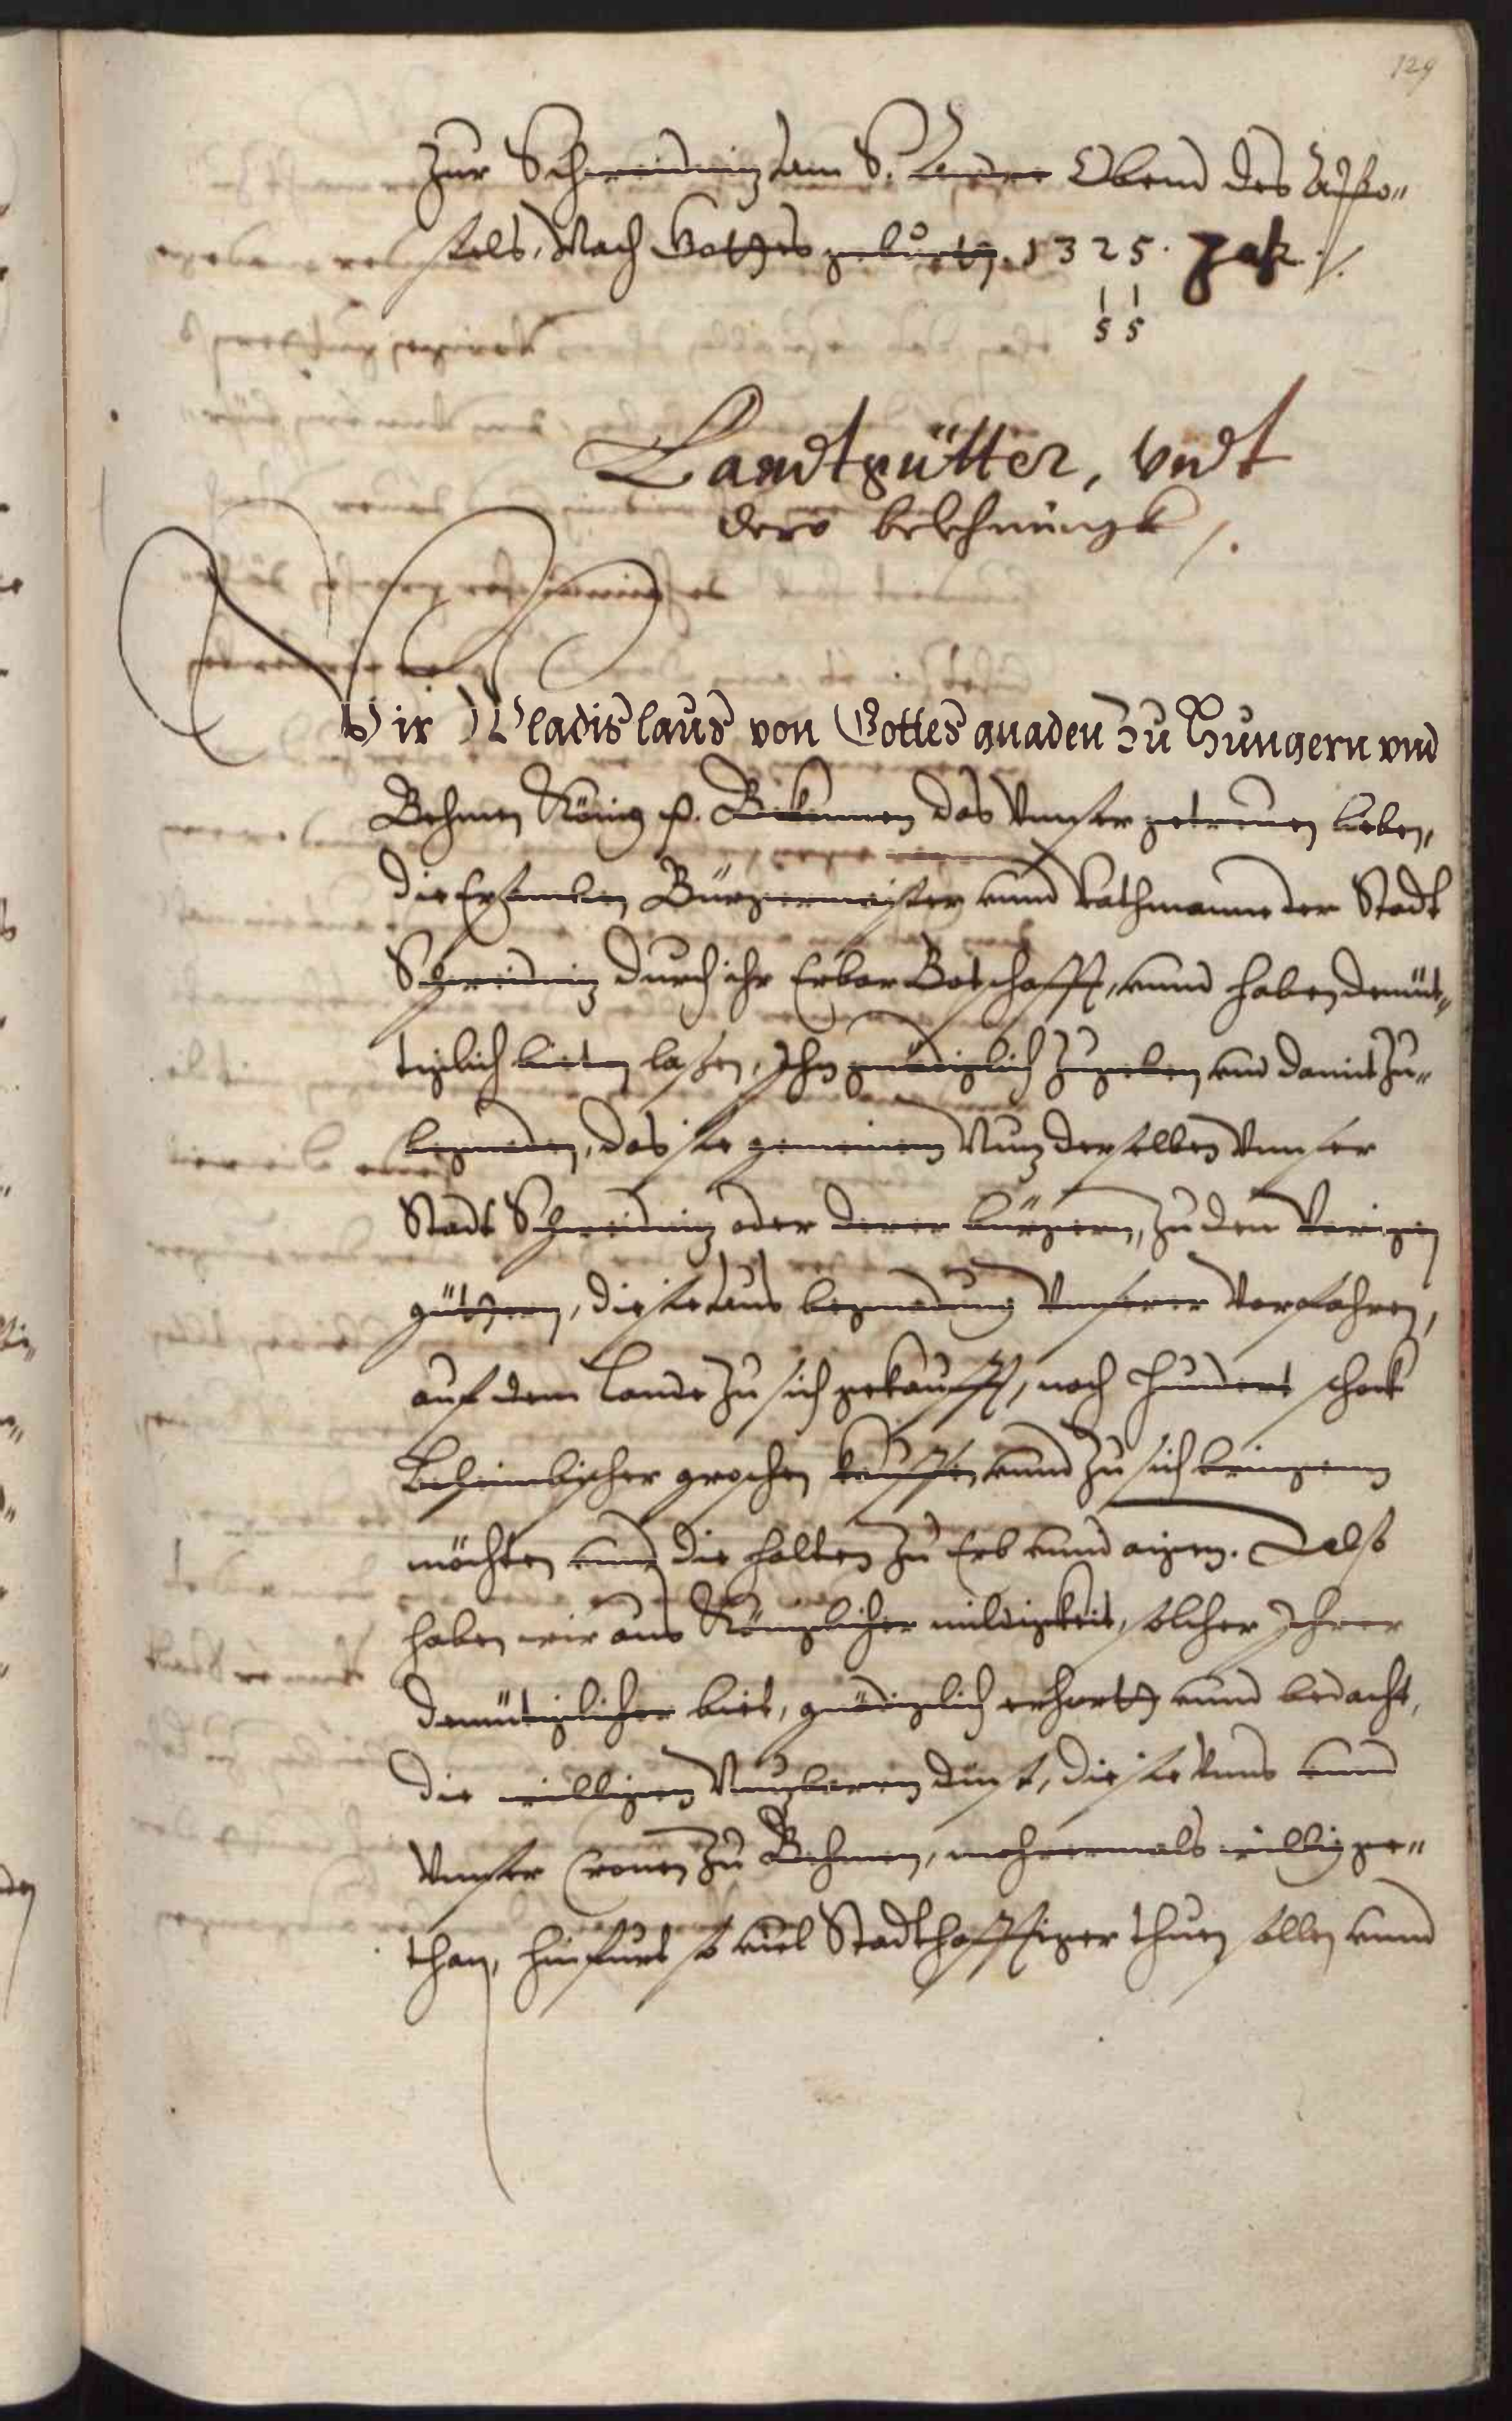 129
Zur Schweidnitz am S. Andree Obend des Appo„
stels, Nach Gottes geburtt. 1325. Jak /.
1 1
5 5
Landtgütter, Vndt
dero belehnungk /.
Wir Wladislaus von Gottes gnaden Zu Hungern vnd
Behmen König p. Bekennen das Vnnser getreuen lieben,
die Ersamben Bürgermeister vnnd Rathmanne der Stadt
Schweidnitz durch ihr Erbar Botschafft, vnnd haben demüt„
tiglich bieten lassen, Ihn gnädiglich Zugeben vnd damit Zu„
begnaden, das sie gemeinem Nutz derselben Vnnser
Stadt Schweidnitz oder derer bürgern, Zu den Vorigen
güttern, die sie aus begnadung Vnnserer Vorfahren,
auf dem Lande Zu sich gekaufft, noch Hundert schock
Behembischer groschen kauffen vnnd Zu sich bringenn
möchten vnnd die halten Zu Erb vnnd aigen. Delß
haben wir aus Königlicher mildigkeit, solcher Ihrer
demütiglicher biet, gnädiglich erhortt vnnd bedacht,
die willigen Nutzbaren dinst, die sie Vnns vnnd
Vnnser Cronen Zu Behmen, mehrermals willig ge„
than, hinfurt so viel Stadthafftiger thuen sollen vnnd